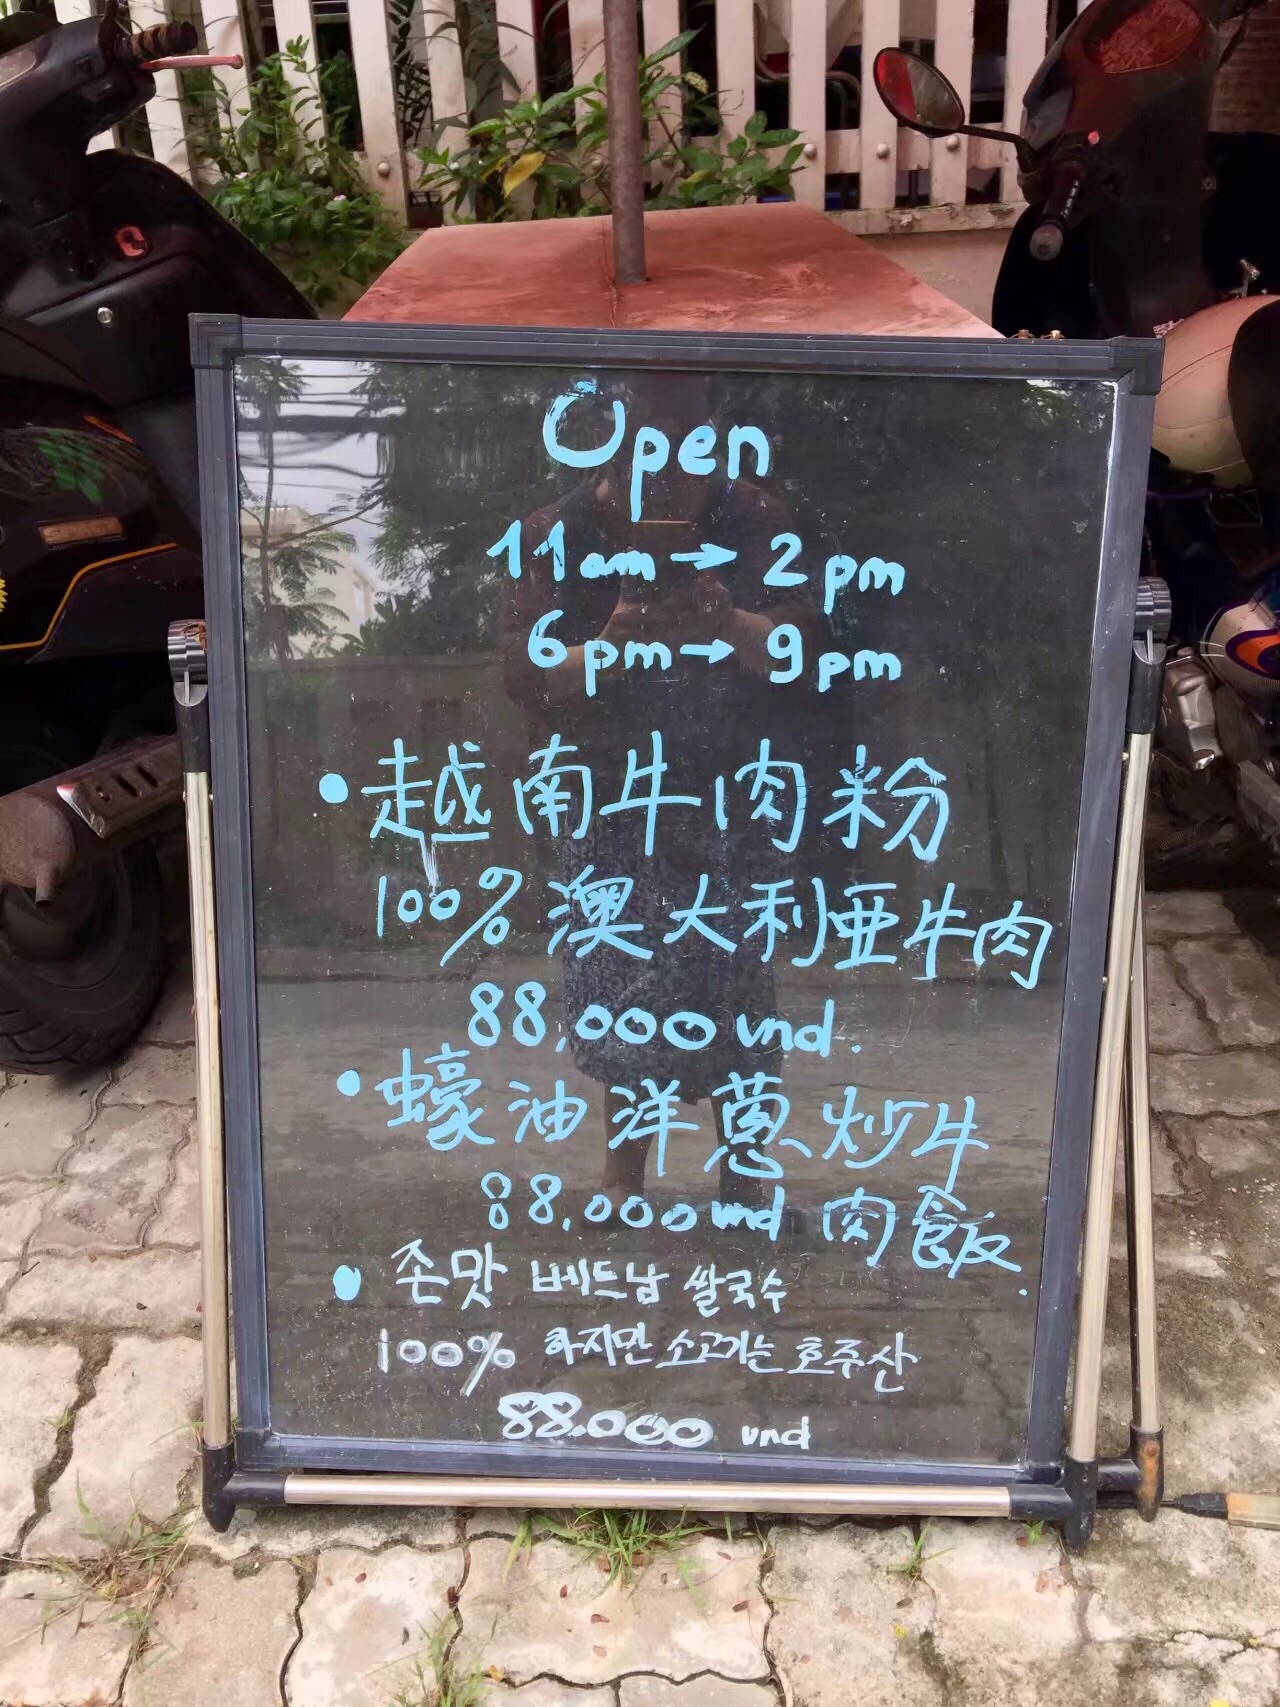 Open
11am → 2pm
6pm → 9pm
• 越南牛肉粉
100% 澳大利亜牛肉
88,000 vnd.
• 蠔油洋蔥炒牛
88,000 vnd 肉飯.
• 존맛 베트남 쌀국수
100% 하지만 소고기는 호주산
88.000 vnd